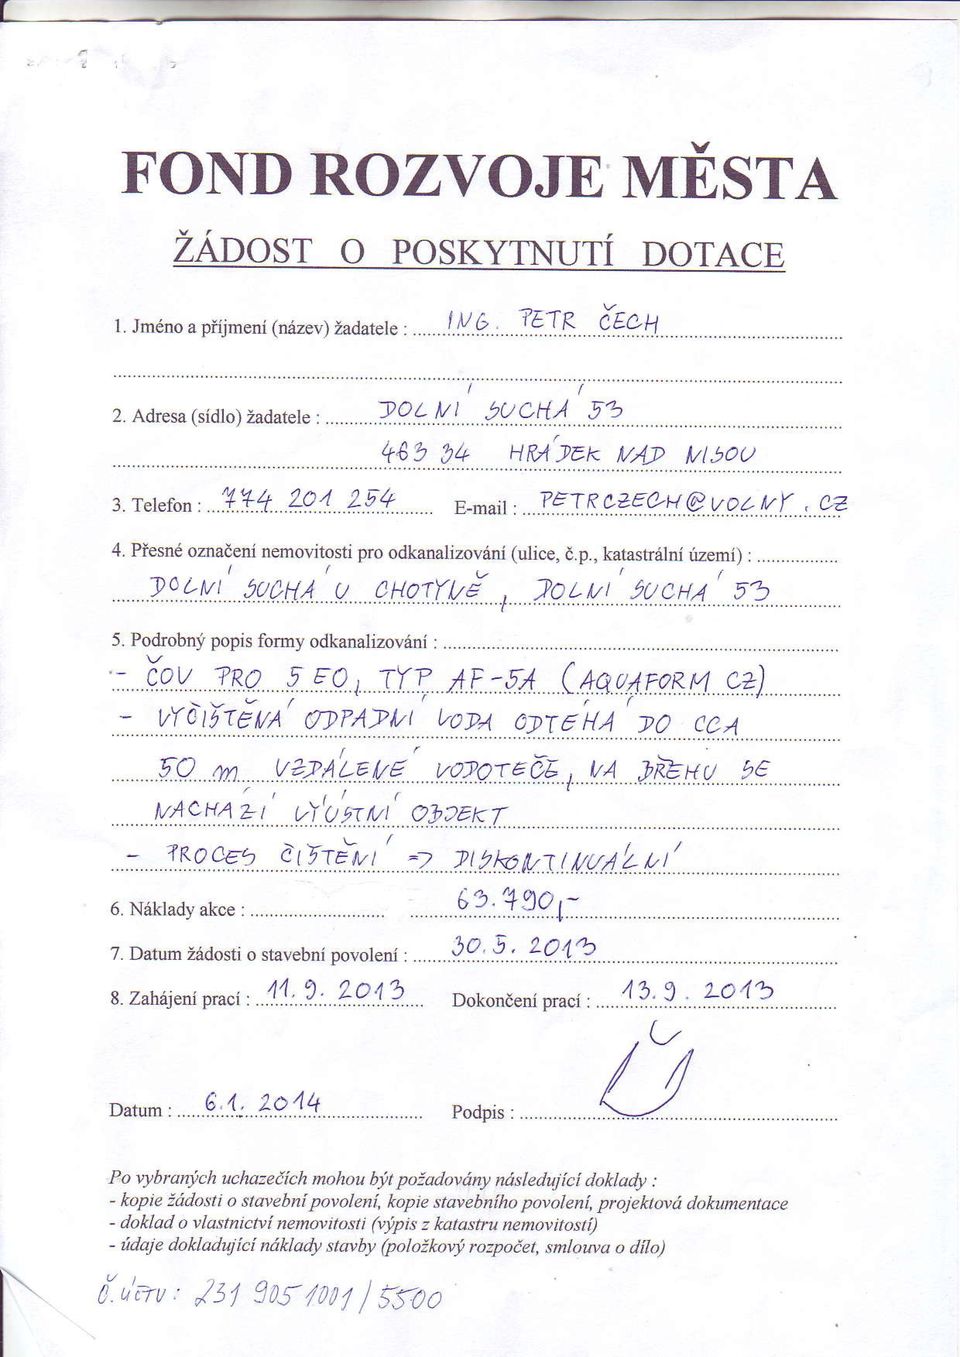 FOND ROZVOJE MĚSTA
ŽÁDOST O POSKYTNUTÍ DOTACE
1. Jméno a příjmení (název) žadatele : ING. PETR ČECH
2. Adresa (sídlo) žadatele : DOLNÍ SUCHÁ 53
463 34 HRÁDEK NAD NISOU
3. Telefon : 774 201 254 E-mail : PETRCZECH@VOLNY.CZ
4. Přesné označení nemovitosti pro odkanalizování (ulice, č.p., katastrální území) :
DOLNÍ SUCHÁ U CHOTYNĚ, DOLNÍ SUCHÁ 53
5. Podrobný popis formy odkanalizování :
- ČOV PRO 5 EO, TYP AF-5A (AQUAFORM CZ)
- VYČIŠTĚNÁ ODPADNÍ VODA ODTÉHÁ DO CCA
50 m VZDÁLENÉ VODOTEČE, NA BŘEHU SE
NACHÁZÍ VÝÚSTNÍ OBJEKT
- PROCES ČIŠTĚNÍ => DISKONTINUÁLNÍ
6. Náklady akce : 63.790,-
7. Datum žádosti o stavební povolení : 30. 5. 2013
8. Zahájení prací : 11. 9. 2013 Dokončení prací : 13. 9. 2013
Datum : 6.1. 2014 Podpis :
Po vybraných uchazečích mohou být požadovány následující doklady :
- kopie žádosti o stavební povolení, kopie stavebního povolení, projektová dokumentace
- doklad o vlastnictví nemovitosti (výpis z katastru nemovitostí)
- údaje dokladující náklady stavby (položkový rozpočet, smlouva o dílo)
Č. účtu : 231 905 1001 / 5500